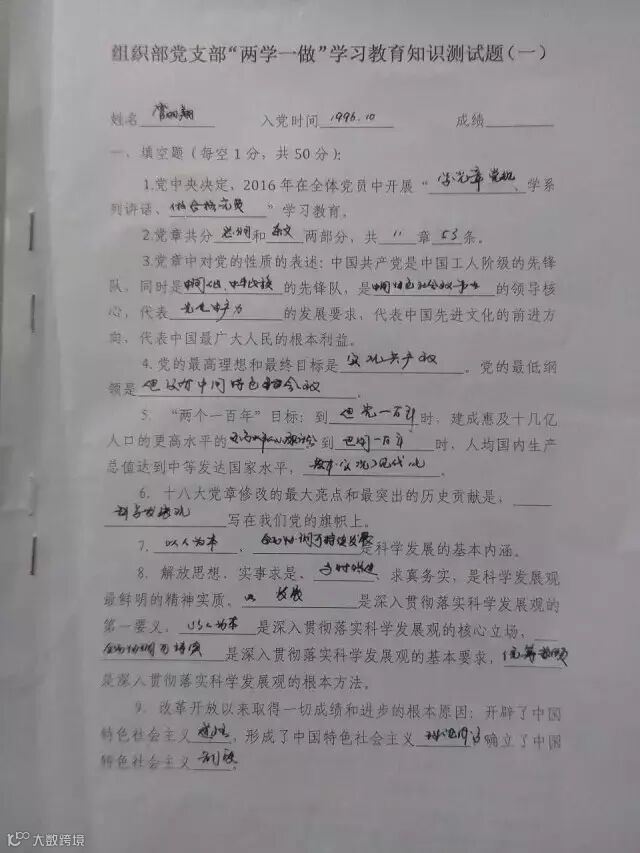 组织部党支部“两学一做”学习教育知识测试题（一）
姓名 入党时间 1996.10 成绩
一、填空题（每空1分，共50分）：
1.党中央决定，2016年在全体党员中开展“学党章党规、学系
列讲话、做合格党员”学习教育。
2.党章共分总纲和条文两部分，共11章53条。
3.党章中对党的性质的表述：中国共产党是中国工人阶级的先锋
队，同时是中国人民、中华民族的先锋队，是中国特色社会主义事业的领导核
心，代表先进生产力的发展要求，代表中国先进文化的前进方
向，代表中国最广大人民的根本利益。
4.党的最高理想和最终目标是实现共产主义。党的最低纲
领是建设有中国特色社会主义。
5. “两个一百年”目标：到建党一百年时，建成惠及十几亿
人口的更高水平的小康社会到建国一百年时，人均国内生产
总值达到中等发达国家水平，基本实现现代化
6. 十八大党章修改的最大亮点和最突出的历史贡献是，
科学发展观写在我们党的旗帜上。
7. 以人为本、全面协调可持续发展是科学发展的基本内涵。
8. 解放思想、实事求是、与时俱进、求真务实，是科学发展观
最鲜明的精神实质，发展是深入贯彻落实科学发展观的
第一要义，以人为本是深入贯彻落实科学发展观的核心立场，
全面协调可持续是深入贯彻落实科学发展观的基本要求，统筹兼顾
是深入贯彻落实科学发展观的根本方法。
9. 改革开放以来取得一切成绩和进步的根本原因：开辟了中国
特色社会主义道路，形成了中国特色社会主义理论体系确立了中国
特色社会主义制度
大数跨境